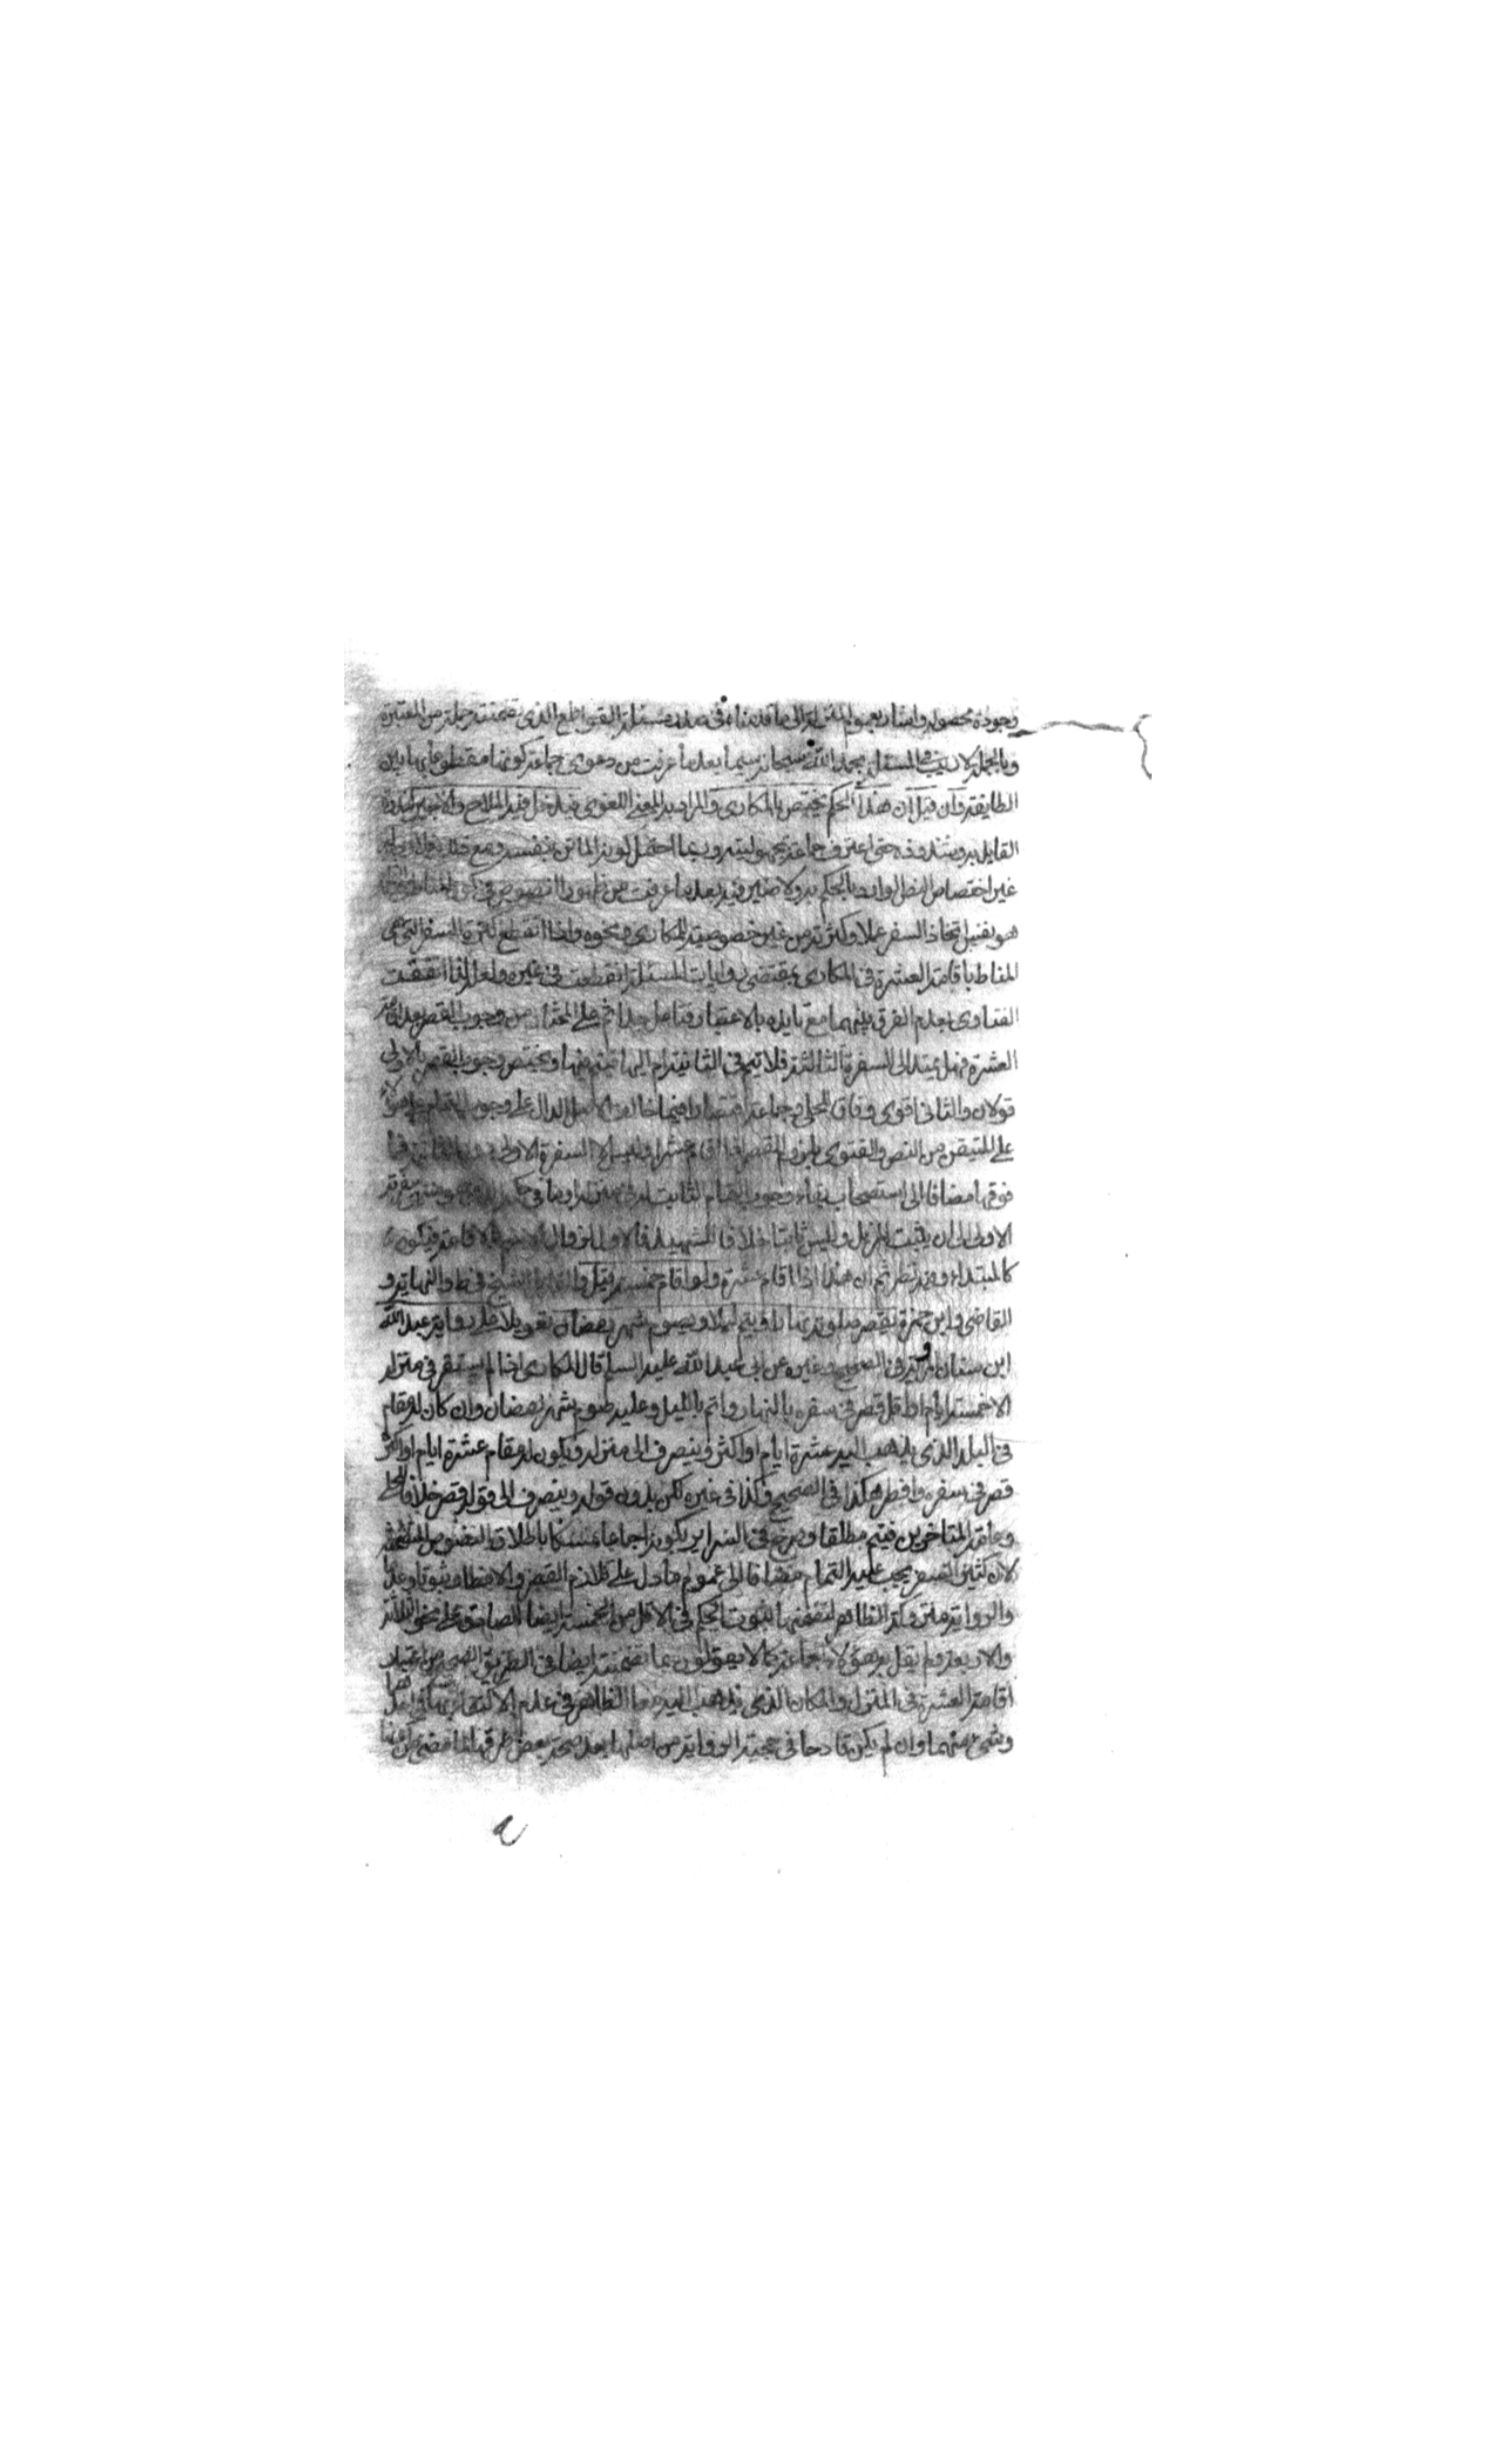 وجوده محصوله واشار بعموم المنزلة الى ما قدمناه في صدر مسئلة القواطع الذى تضمنته جملة من المعتبرة
وبالجملة لا ريب في المسئلة بحمد الله سبحانه سيما بعد ما عرفت من دعوى جماعة كونها مقطوعا بها بين
الطايفة وان قيل ان هذا الحكم يختص بالمكارى والمراد به المعنى اللغوى فيدخل فيه الملاح والاجير
القايل به وشذوذه حتى اعترف جماعة بمجهوليته وربما احتمل كونه الماتن نفسه ومع ذلك
غير اختصاص النص الوارد بالحكم به ولا ضير فيه بعد ما عرفت من ظهور النصوص في كون المناط
هو نفس اتخاذ السفر عملا وكثرته من غير خصوصية للمكارى ونحوه واذا انقطع كثرة السفر التى هى
المناط باقامة العشرة في المكارى بمقتضى روايات المسئلة انقطعت في غيره ولعله لذا اتفقت
الفتاوى بعدم الفرق بينهما مع تايده بالاعتبار فتامل جدا ثم على المختار من وجوب القصر بعد اقامة
العشرة فهل يمتد الى السفرة الثالثة فلا يتم في الثانية ام اليها فيتم فيها ويختص وجوب القصر بالاولى
قولان والثانى اقوى وفاقا للحلى وجماعة اقتصارا فيما خالف الاصل الدال على وجوب التمام
على المتيقن من النص والفتوى بلزوم القصر اذا اقام عشرا وليس الا السفرة الاولى دون الثانية فما
فوقها مضافا الى استصحاب بقاء وجوب التمام الثابت له في منزله وما في حكمه
الاولى الى ان يثبت المزيل وليس ثابتا خلافا للشهيد فالاول لزوال الاسم بالاقامة فيكون
كالمبتداء وفيه نظر ثم ان هذا اذا اقام عشرة ولو اقام خمسة قيل والقائل الشيخ في ط والنهاية و
القاضى وابن حمزة يقصر صلوته نهارا ويتم ليلا ويصوم شهر رمضان تعويلا على رواية عبد الله
ابن سنان المروية في الصحيح وغيره عن ابى عبد الله عليه السلم قال المكارى اذا لم يستقر في منزله
الا خمسة ايام او اقل قصر في سفره بالنهار واتم بالليل وعليه صوم شهر رمضان وان كان له مقام
في البلد الذى يذهب اليه عشرة ايام او اكثر وينصرف الى منزله ويكون له مقام عشرة ايام او اكثر
قصر في سفره وافطر هكذا في الصحيح وكذا في غيره لكن بدون قوله وينصرف الى قوله قصر خلافا للحلى
وعامة المتاخرين فيتم مطلقا وصرح في السراير بكونه اجماعا تمسكا باطلاق النصوص المتضمنة
لان كثير السفر يجب عليه التمام مضافا الى عموم ما دل على تلازم القصر والافطار ثبوتا وعدما
والرواية متروكة الظاهر لتضمنها ثبوت الحكم في الاقل من الخمسة ايضا الصادق على نحو الثلاثة
والاربعة ولم يقل به هؤلاء الجماعة كما لا يقولون بما تضمنته ايضا في الطريق الصحيح من اعتبار
اقامة العشرة في المنزل والمكان الذى يذهب اليه معا الظاهر في عدم الاكتفاء بها في احدهما
وشئ منهما وان لم يكن قادحا في حجية الرواية من اصلها بعد صحة بعض طرقها